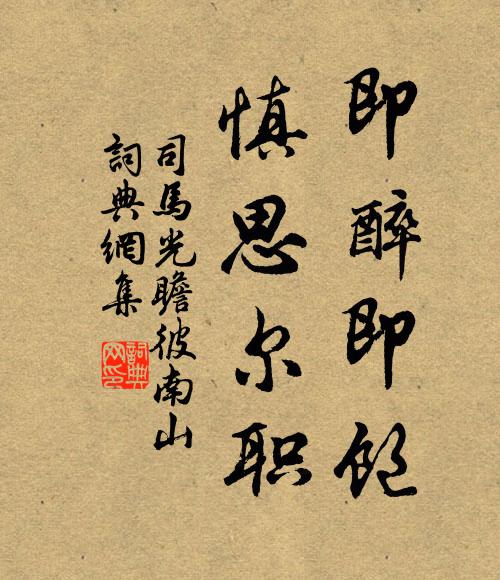 即醉即飽
慎思尔职
司馬光瞻彼南山
詞典網集
詞典网印